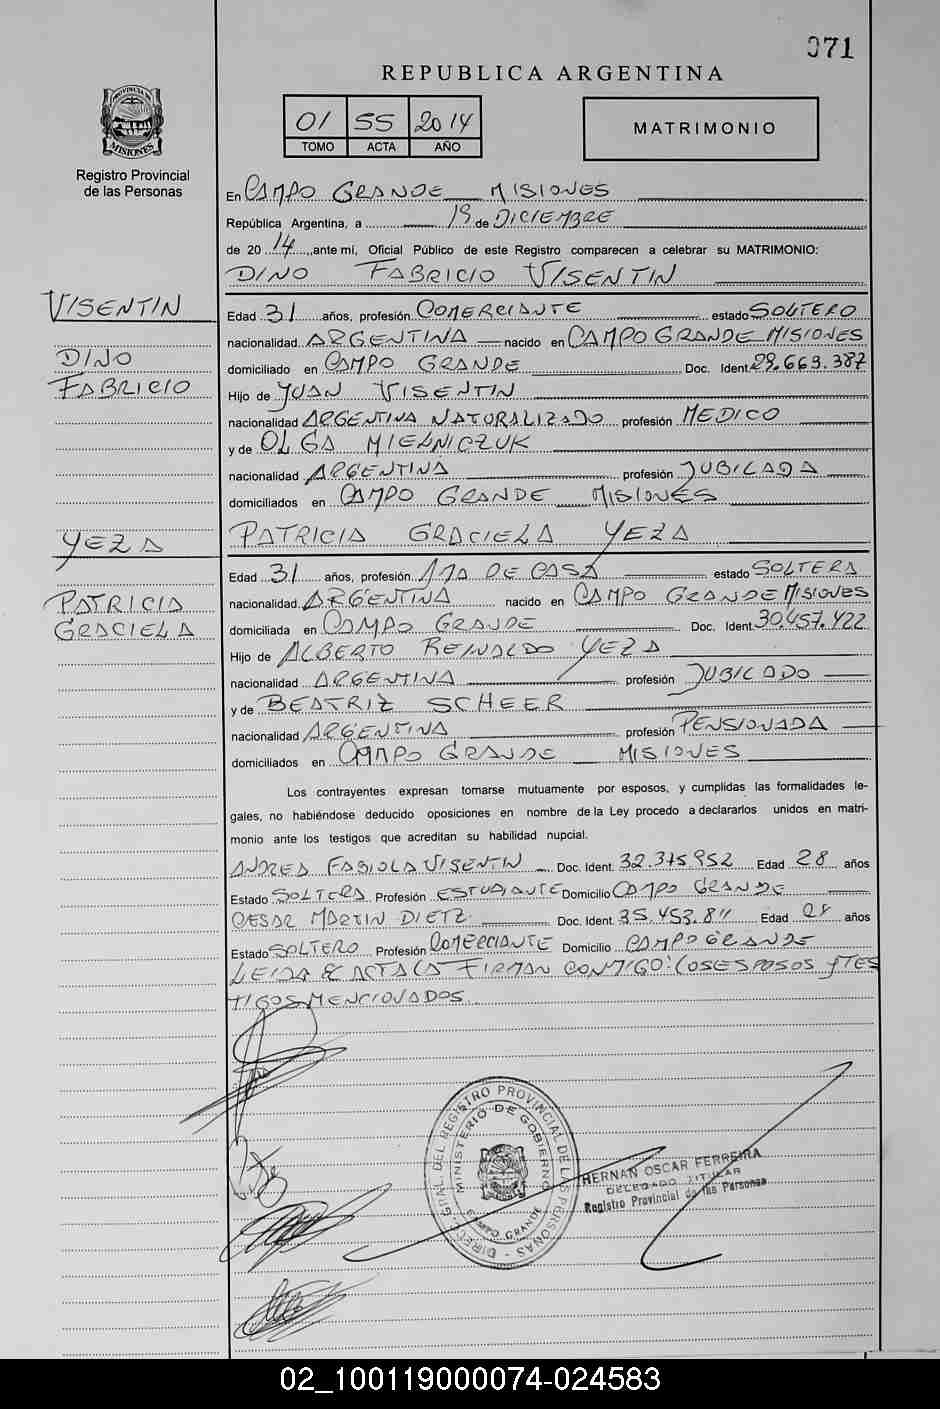 071
REPUBLICA ARGENTINA
01 55 2014
TOMO ACTA AÑO
MATRIMONIO
PROVINCIA DE
MISIONES
Registro Provincial
de las Personas
En CAMPO GRANDE MISIONES
República Argentina, a 19 de DICIEMBRE
de 20 14 ante mí, Oficial Público de este Registro comparecen a celebrar su MATRIMONIO:
DINO FABRICIO VISENTIN
VISENTIN
DINO
FABRICIO
Edad 31 años, profesión COMERCIANTE estado SOLTERO
nacionalidad ARGENTINA nacido en CAMPO GRANDE MISIONES
domiciliado en CAMPO GRANDE Doc. Ident. 29.663.387
Hijo de JUAN VISENTIN
nacionalidad ARGENTINA NATURALIZADO profesión MEDICO
y de OLGA MIELNICZUK
nacionalidad ARGENTINA profesión JUBILADA
domiciliados en CAMPO GRANDE MISIONES
PATRICIA GRACIELA YEZA
YEZA
PATRICIA
GRACIELA
Edad 31 años, profesión AMA DE CASA estado SOLTERA
nacionalidad ARGENTINA nacido en CAMPO GRANDE MISIONES
domiciliada en CAMPO GRANDE Doc. Ident. 30.457.422
Hijo de ALBERTO REINALDO YEZA
nacionalidad ARGENTINA profesión JUBILADO
y de BEATRIZ SCHEER
nacionalidad ARGENTINA profesión PENSIONADA
domiciliados en CAMPO GRANDE MISIONES
Los contrayentes expresan tomarse mutuamente por esposos, y cumplidas las formalidades le-
gales, no habiéndose deducido oposiciones en nombre de la Ley procedo a declararlos unidos en matri-
monio ante los testigos que acreditan su habilidad nupcial.
ANDREA FABIOLA VISENTIN Doc. Ident. 32.375.952 Edad 28 años
Estado SOLTERA Profesión ESTUDIANTE Domicilio CAMPO GRANDE
CESAR MARTIN DIETZ Doc. Ident. 35.453.811 Edad años
Estado SOLTERO Profesión COMERCIANTE Domicilio CAMPO GRANDE
LEIDA EL ACTA LA FIRMAN CONMIGO: LOS ESPOSOS Y TES
TIGOS MENCIONADOS
DIREC. GRAL DEL REGISTRO PROVINCIAL DE LAS PERSONAS
MINISTERIO DE GOBIERNO
CAMPO GRANDE
HERNAN OSCAR FERREIRA
DELEGADO TITULAR
Registro Provincial de las Personas
02_100119000074-024583